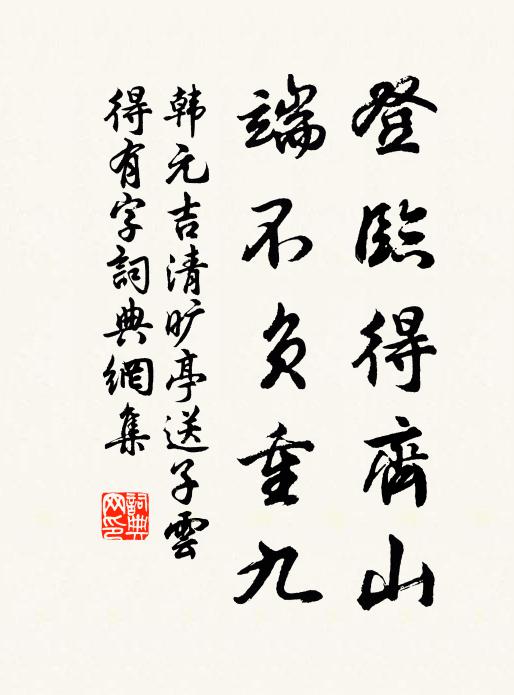 登臨得齊山
端不負重九
韩元吉清旷亭送子雲
得有字詞典網集
詞典网印